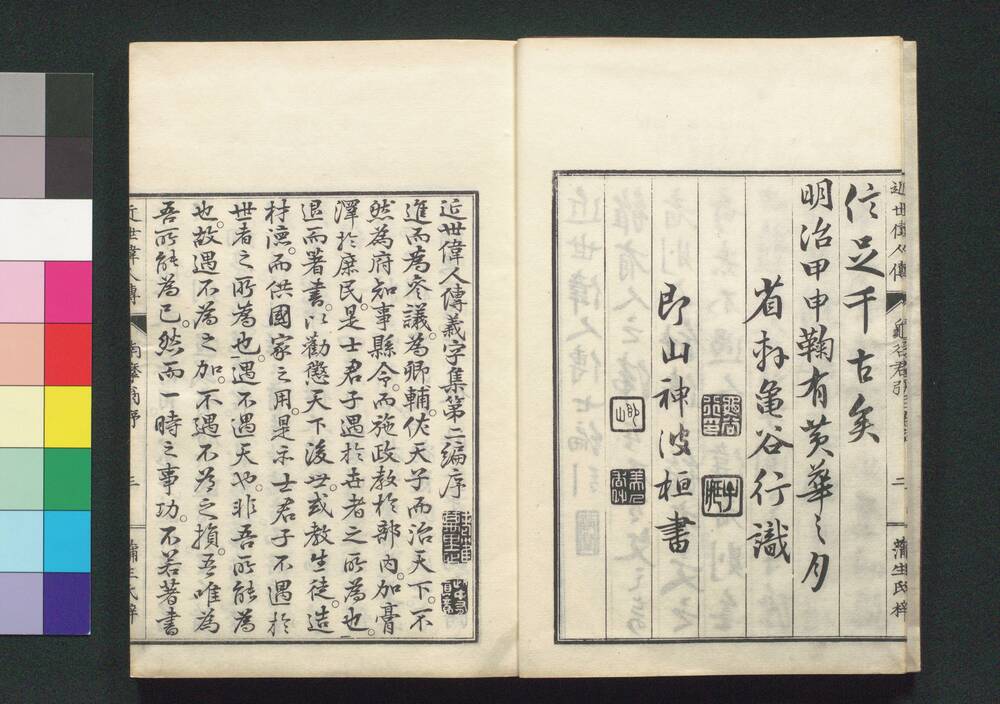 近世偉人傳
二
蒲生氏梓
信足千古矣
明治甲申鞠有黄華之月
省軒亀谷行識
即山神波桓書
近世偉人傳義字集第二編序
進而為參議。為卿輔。佐天子而治天下。不
然為府知事縣令。而施政教於部內。加膏
澤於庶民。是士君子遇於世者之所為也。
退而著書。以勸懲天下後世。或教生徒。造
材德。而供國家之用。是示士君子不遇於
世者之所為也。遇不遇天也。非吾所能為
也。故遇不為之加。不遇不為之損。吾唯為
吾所能為已。然而一時之事功。不若著書
近世偉人傳
三
蒲生氏梓